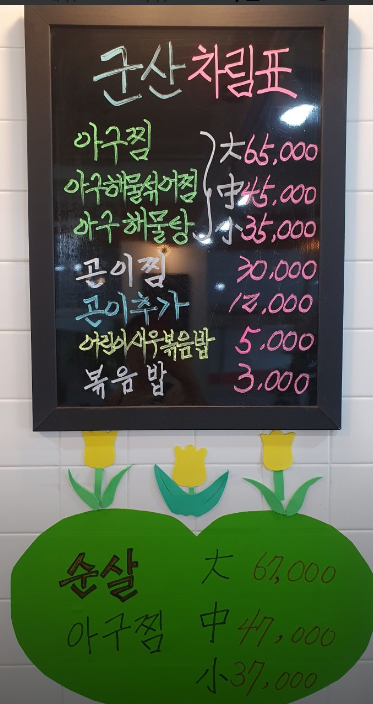 군산 차림표
아구찜 大 65,000
아구해물섞어찜 中 45,000
아구해물탕 小 35,000
곤이찜 30,000
곤이추가 12,000
어린이새우볶음밥 5,000
볶음밥 3,000
순살 大 67,000
아구찜 中 47,000
小 37,000